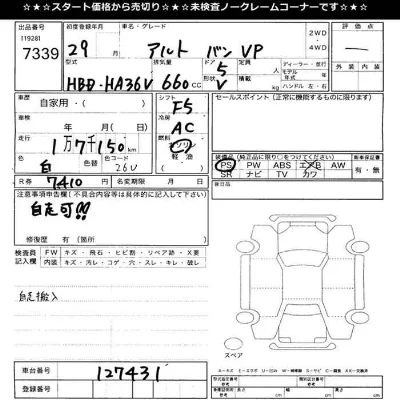 ☆★☆スタート価格から売切り☆★☆★未検査ノークレームコーナーです☆★☆
出品番号
119281
7339
初度登録年月
29 月
車名・グレード
アルト バン VP
2WD
・
4WD
評価点
外装 内装
型式
HBD-HA36V
排気量
660 cc
ドア形状
5
V
ディーラー・並行
モデル年式 年
ハンドル 左・右
車歴
自家用・
車検
年 月 日
走行
1万7千150 km
色
白
色替
色コード
26U
シフト
F5
冷房
AC
燃料
ガソリン
軽油
セールスポイント（正常に機能するものに限ります）
装備品（純正品に限り○をつけてください）
PS PW ABS エアB AW
SR ナビ TV カワ
新車保証書
有・無
R券
7410
名変期限 年 月 日
諸元
注意事項申告欄（不具合内容等は具体的に記入して下さい）
自走可!!
修復歴 有（箇所
検査員記入欄
FW キズ・飛石・ヒビ割・リペア跡・X要
内装 キズ・コゲ・穴・スレ・キレ・破レ
自走搬入
スペア
車台番号
127431
登録番号